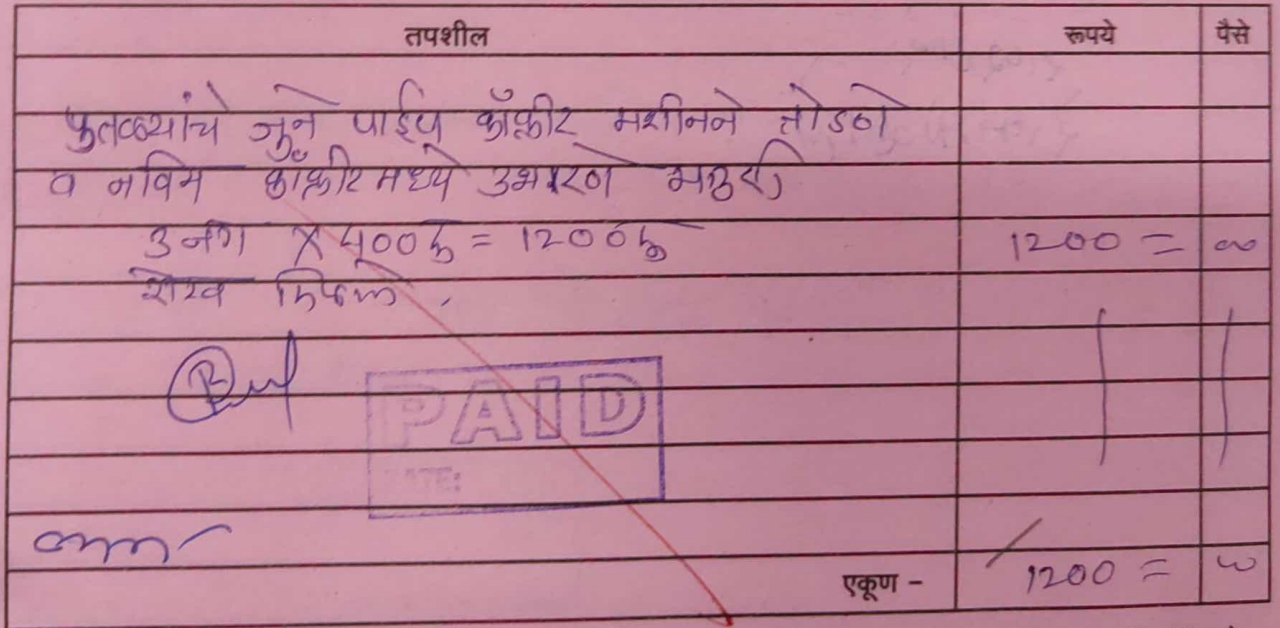 तपशील रूपये पैसे
पुतळ्यांचे जुने पाईप काँक्रीट मशीनने तोडणे
व नविन काँक्रीट मध्ये उभारणे मजुरी
3 नग X 400रु = 1200रु 1200 = 00
शेख
PAID
DATE:
एकूण - 1200 = 00